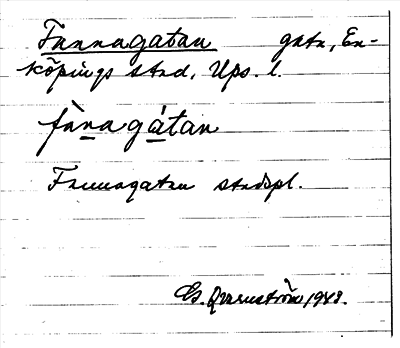 Fannagatan gata, En-
köpings stad, Ups. l.
fànagátan
Fannagatan stadspl.
G. Qvarnström 1948.